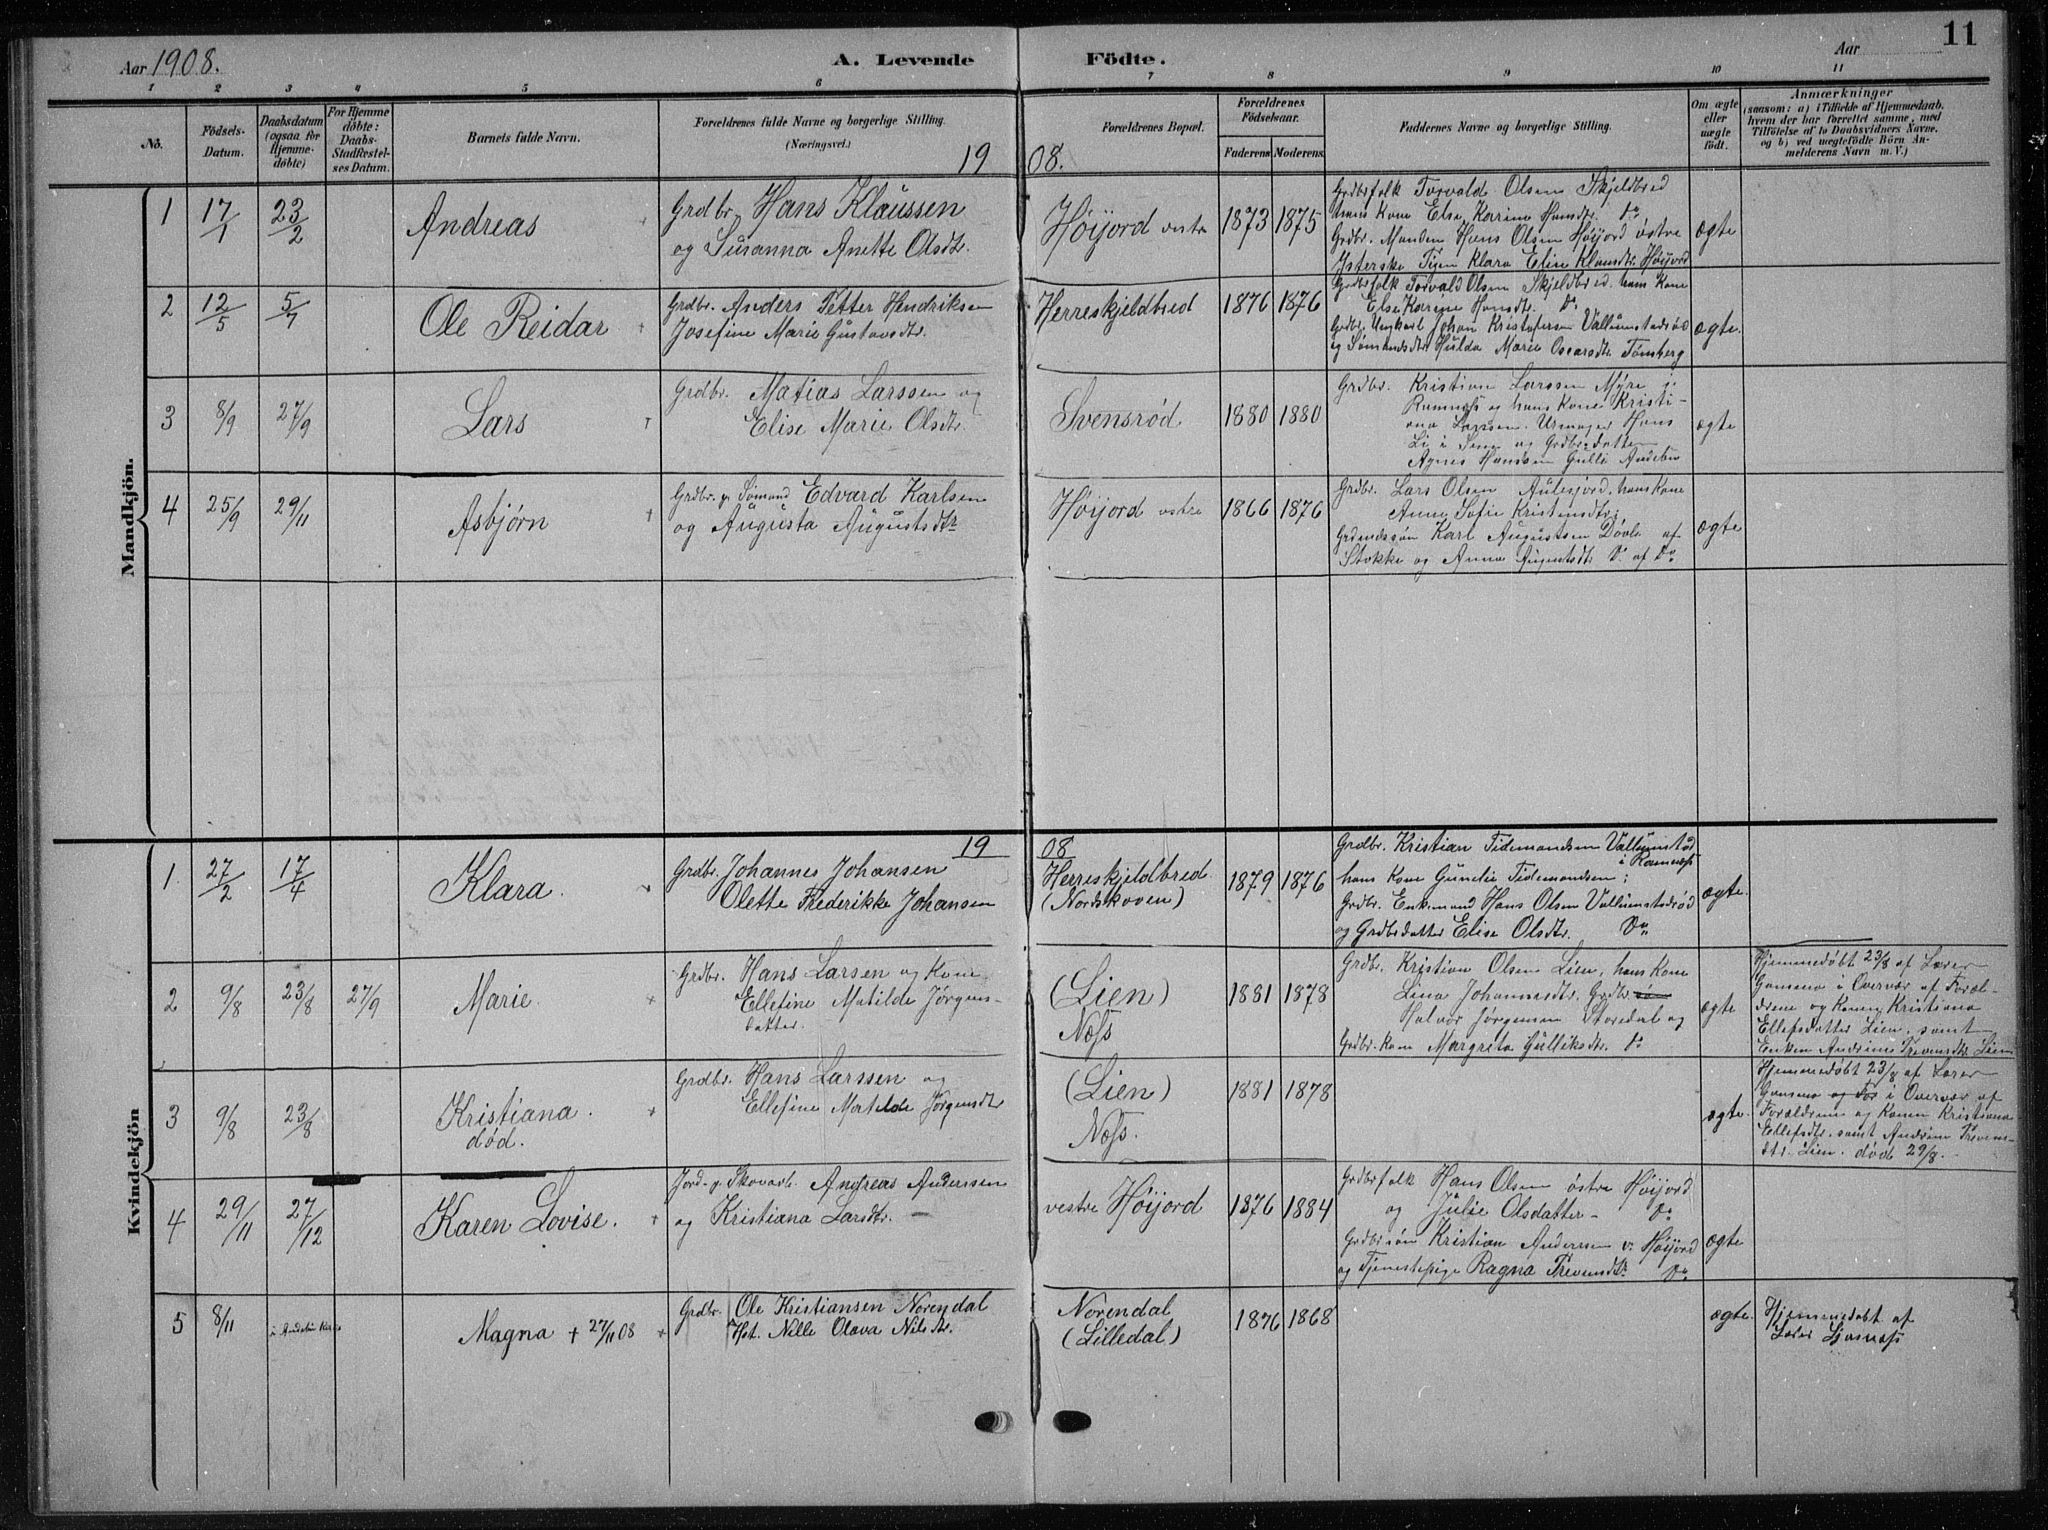 Aar 1908.
A. Levende Födte.
Aar
11
1 2 3 4 5 6 7 8 9 10 11
No.
Födsels-
Datum.
Daabsdatum
(ogsaa for
Hjemme-
döbte)
For Hjemme
döbte:
Daabs-
Stadfæstel-
ses Datum.
Barnets fulde Navn.
Forældrenes fulde Navne og borgerlige Stilling.
(Næringsvei.)
Forældrenes Bopæl.
Forældrenes
Födselsaar.
Faderens Moderens
Faddernes Navne og borgerlige Stilling.
Om ægte
eller
uægte
födt.
Anmærkninger
(saasom: a) i Tilfælde af Hjemmedaab.
hvem der har forrettet samme, med
Tilföielse af to Daabsvidners Navne.
og b) ved uegtefödte Börn An-
melderens Navn m. V.)
1908.
Mandkjön.
1 17/1 23/2 Andreas
Grdbr. Hans Klaussen
og Susanna Anette Olsdtr.
Höijord østre 1873 1875
Grdbrfolk Torvald Olsen Skjeldbred
hans Kone Else Karine Hansdtr. Do
Grdbr. Manden Hans Olsen Höijord østre
Klara Elise Klausdtr. Höijord
ægte
2 12/5 5/7 Ole Reidar
Grdbr. Anders Petter Hendriksen
Josefine Marie Gustavsdtr.
Herreskjeldbred 1876 1876
Grdbrfolk Torvald Olsen Skjeldbred, hans Kone
Else Karine Hansdtr. Do
Grdbr. Ungkarl Johan Kristofersen Vallumstadröd
og Sømandsdtr Hulda Marie Oscarsdtr Tønsberg
ægte.
3 8/9 27/9 Lars
Grdbr. Matias Larssen og
Elise Marie Olsdtr.
Svensrød 1880 1880
Grdbr. Kristian Larssen Myre i
Ramnæs og hans Kone Kristi-
ana Larssen. Urmager Hans
Li i Sem og Grdbr.datter
Agnes Hanssen Gulli Andebu
ægte
4 25/9 29/11 Asbjørn
Grdbr. og Sømand Edvard Karlsen
og Augusta Augustsdtr
Høijord østre 1866 1876
Grdbr. Lars Olsen Aulesjord, hans Kone
Anne Sofie Kristensdtr;
Grdmdssøn Karl Augustsen Døvle af
Stokke og Anna Augustsdtr D. af Do
ægte
1908
Kvindekjön
1 27/2 17/4 Klara.
Grdbr. Johannes Johansen
Olette Frederikke Johansen
Herreskjeldbred
(Nordskoven) 1879 1876
Grdbr. Kristian Tidemandsen Vallumstød
i Ramnæs
hans Kone Gunelie Tidemandsen;
Grdbr. Enkemand Hans Olsen Vallumstadrød
og Grdbrdatter Elise Olsdtr. Do
ægte.
2 9/8 23/8 27/9 Marie
Grdbr. Hans Larsen og Kone
Ellefine Matilde Jørgens-
datter.
(Lien)
Næss 1881 1878
Grdbr. Kristian Olsen Lien, hans Kone
Lina Johannesdtr. Grdbr
Halvor Jørgensen Storedal og
Grdbr.kone Margrete Gulliksdtr. Do
ægte
Hjemmedøbt 23/8 af Lærer
i Overvær af Foræl-
drene og Konen Kristiana
Ellefsdatter Lien, samt
Enken Andrine Trevensdtr Lien
3 9/8 23/8 Kristiana.
død.
Grdbr. Hans Larssen og
Ellefine Matilde Jørgensdtr
(Lien)
Næss. 1881 1878
ægte.
Hjemmedøbt 23/8 af Lærer
i Overvær af
Forældrene og Konen Kristiana
Ellefsdtr. samt Andrine Trevens-
dtr. Lien. død 29/8.
4 29/11 27/12 Karen Lovise.
Jord- og Skovarb. Andreas Andersen
og Kristiana Larsdtr.
vestre Höijord 1876 1884
Grdbrfolk Hans Olsen østre Höijord
og Julie Olsdatter Do
Grdbrsøn Kristian Andersen v. Høijord
og Tjenestepige Ragna Trevensdtr. Do
ægte
5 8/11 i Andebu Kirke Magna + 27/11 08
Grdbr. Ole Kristiansen Norendal
Hst. Nille Olava Nilsdtr.
Norendal
(Lilledal) 1876 1868
ægte.
Hjemmedøbt af
Lærer